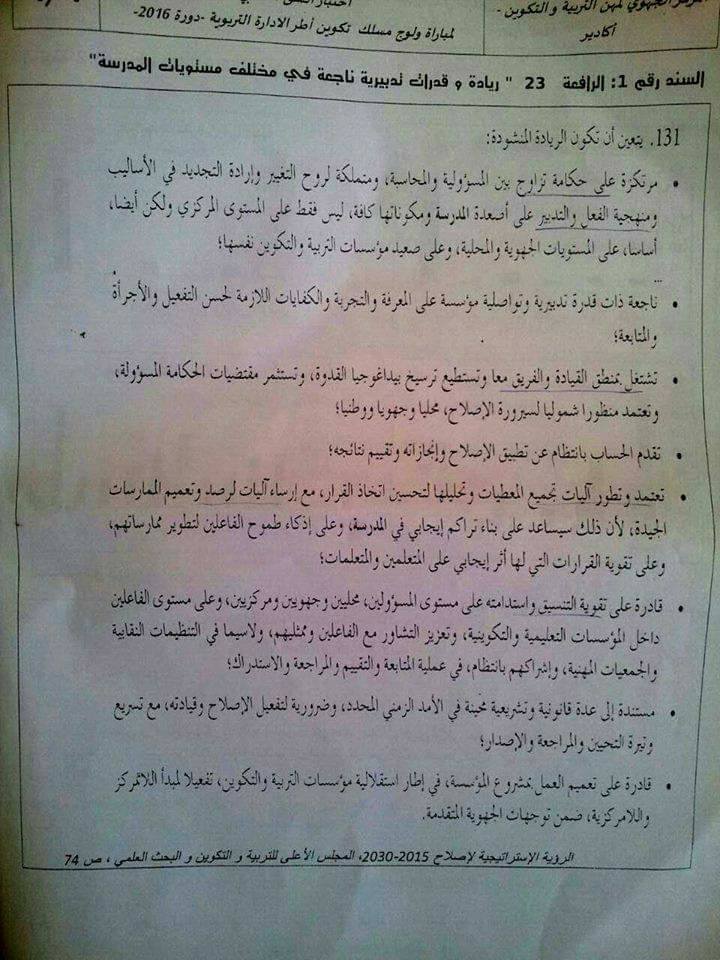 المركز الجهوي لمهن التربية و التكوين -
أكادير
لمباراة ولوج مسلك تكوين أطر الادارة التربوية -دورة 2016-
السند رقم 1: الرافعة 23 " ريادة و قدرات تدبيرية ناجعة في مختلف مستويات المدرسة"
131. يتعين أن تكون الريادة المنشودة:
• مرتكزة على حكامة تزاوج بين المسؤولية والمحاسبة، ومتملكة لروح التغيير وإرادة التجديد في الأساليب
ومنهجية الفعل والتدبير على أصعدة المدرسة ومكوناتها كافة، ليس فقط على المستوى المركزي ولكن أيضا،
أساسا، على المستويات الجهوية والمحلية، وعلى صعيد مؤسسات التربية والتكوين نفسها؛
...
• ناجعة ذات قدرة تدبيرية وتواصلية مؤسسة على المعرفة والتجربة والكفايات اللازمة لحسن التفعيل والأجرأة
والمتابعة؛
• تشتغل بمنطق القيادة والفريق معا وتستطيع ترسيخ بيداغوجيا القدوة، وتستثمر مقتضيات الحكامة المسؤولة،
وتعتمد منظورا شموليا لسيرورة الإصلاح، محليا وجهويا ووطنيا؛
• تقدم الحساب بانتظام عن تطبيق الإصلاح وإنجازاته وتقييم نتائجه؛
• تعتمد وتطور آليات تجميع المعطيات وتحليلها لتحسين اتخاذ القرار، مع إرساء آليات لرصد وتعميم الممارسات
الجيدة، لأن ذلك سيساعد على بناء تراكم إيجابي في المدرسة، وعلى إذكاء طموح الفاعلين لتطوير ممارساتهم،
وعلى تقوية القرارات التي لها أثر إيجابي على المتعلمين والمتعلمات؛
• قادرة على تقوية التنسيق واستدامته على مستوى المسؤولين، محليين وجهويين ومركزيين، وعلى مستوى الفاعلين
داخل المؤسسات التعليمية والتكوينية، وتعزيز التشاور مع الفاعلين وممثليهم، ولاسيما في التنظيمات النقابية
والجمعيات المهنية، وإشراكهم بانتظام، في عملية المتابعة والتقييم والمراجعة والاستدراك؛
• مستندة إلى عدة قانونية وتشريعية محينة في الأمد الزمني المحدد، وضرورية لتفعيل الإصلاح وقيادته، مع تسريع
وتيرة التحيين والمراجعة والإصدار؛
• قادرة على تعميم العمل بمشروع المؤسسة، في إطار استقلالية مؤسسات التربية والتكوين، تفعيلا لمبدأ اللاتمركز
واللامركزية، ضمن توجهات الجهوية المتقدمة.
الرؤية الإستراتيجية لإصلاح 2015-2030، المجلس الأعلى للتربية و التكوين و البحث العلمي ، ص 74